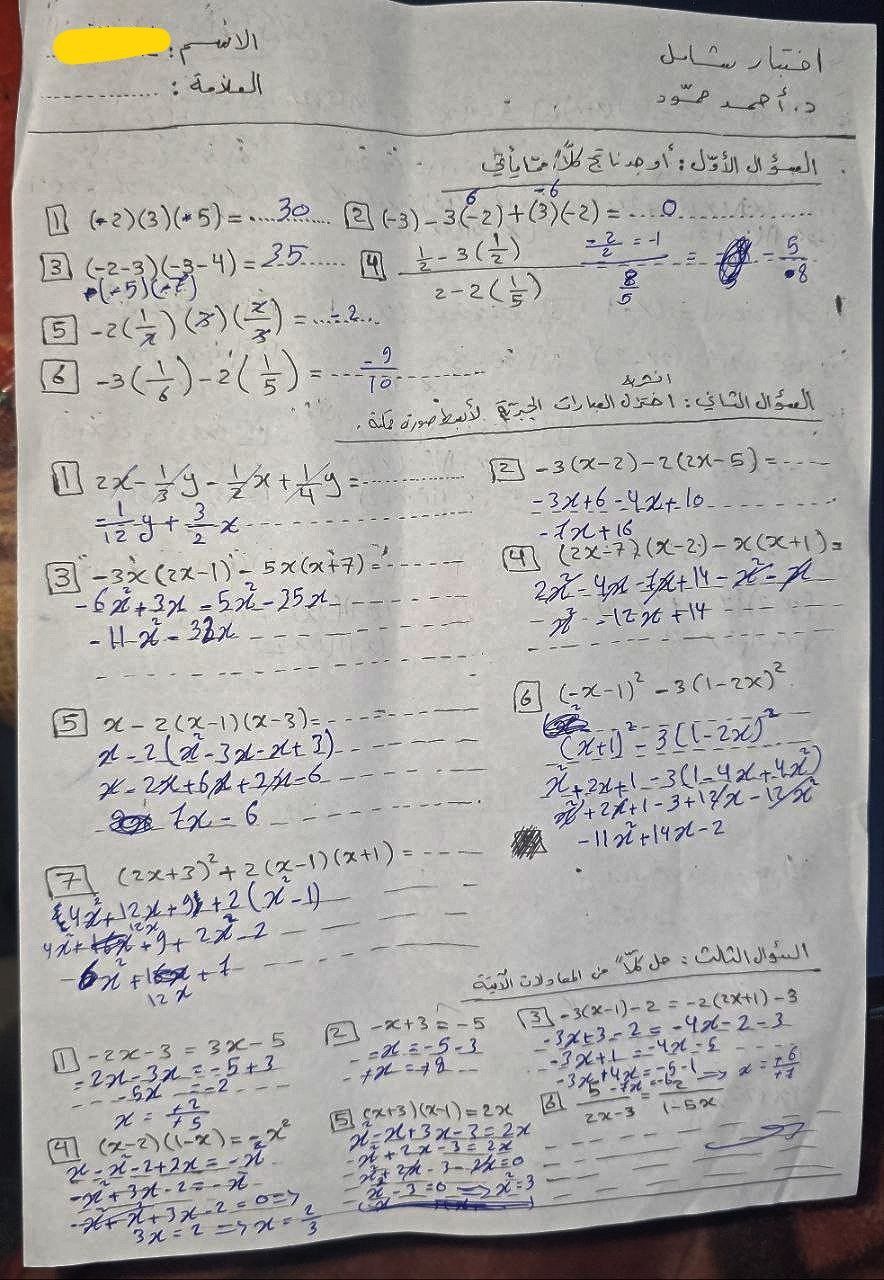 اختبار شامل
الاسم: ..........
د. أحمد حمّود
العلامة: ..........
السؤال الأوّل: أوجد ناتج كلاًّ ممّا يأتي
1 (-2)(3)(-5) = .... 30 ....
2 (-3) - 3(-2) + (3)(-2) = .... 0 ....
6 -6
3 (-2-3)(-3-4) = 35 ....
(-5)(-7)
4 (1/2 - 3(1/2)) / (2 - 2(1/5)) = (-2/2 = -1) / (8/5) = = 5/-8
5 -2(1/2)(3)(2/3) = .... -2 ....
6 -3(1/6) - 2(1/5) = -9/10
انشر
السؤال الثاني: اختزل العبارات الجبريّة لأبسط صورة ممكنة.
1 2x - 1/3 y - 1/2 x + 1/4 y = ....
= 1/12 y + 3/2 x
2 -3(x-2) - 2(2x-5) = ----
-3x+6 -4x+10
-7x+16
3 -3x(2x-1) - 5x(x+7) = ----
-6x²+3x -5x²-35x
-11x² - 32x
4 (2x-7)(x-2) - x(x+1) =
2x²-4x-7x+14-x²-x
x² -12x+14
5 x - 2(x-1)(x-3) = ----
x-2(x²-3x-x+3)
x-2x+6x+2x-6
7x - 6
6 (-x-1)² - 3(1-2x)²
(x+1)² - 3(1-2x)²
x²+2x+1-3(1-4x+4x²)
x²+2x+1-3+12x-12x²
-11x²+14x-2
7 (2x+3)² + 2(x-1)(x+1) = ----
(4x²+12x+9)+2(x²-1)
4x²+12x+9+2x²-2
6x²+12x+7
السؤال الثالث: حل كلاًّ من المعادلات الآتية
1 -2x-3 = 3x-5
-2x-3x = -5+3
-5x = -2
x = +2/+5
2 -x+3 = -5
-x = -5-3
+x = +8
3 -3(x-1)-2 = -2(2x+1)-3
-3x+3-2 = -4x-2-3
-3x+1 = -4x-5
-3x+4x = -5-1
x = -6 => x = +6/+1
4 (x-2)(1-x) = -x²
x-x²-2+2x = -x²
-x²+3x-2 = -x²
-x²+x²+3x-2 = 0 =>
3x = 2 => x = 2/3
5 (x+3)(x-1) = 2x
x²-x+3x-3 = 2x
x²+2x-3 = 2x
x²+2x-3-2x = 0
x²-3 = 0 => x² = 3
6 5/(2x-3) = 2/(1-5x)